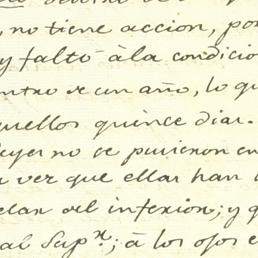 no tiene accion, por
y faltó á la condicio
entro de un año, lo qu
quellos quince dias.
eyes no se pusieron en
a ver que ellas han
elas del inferior; y q
al Sup.r; á los ojos e